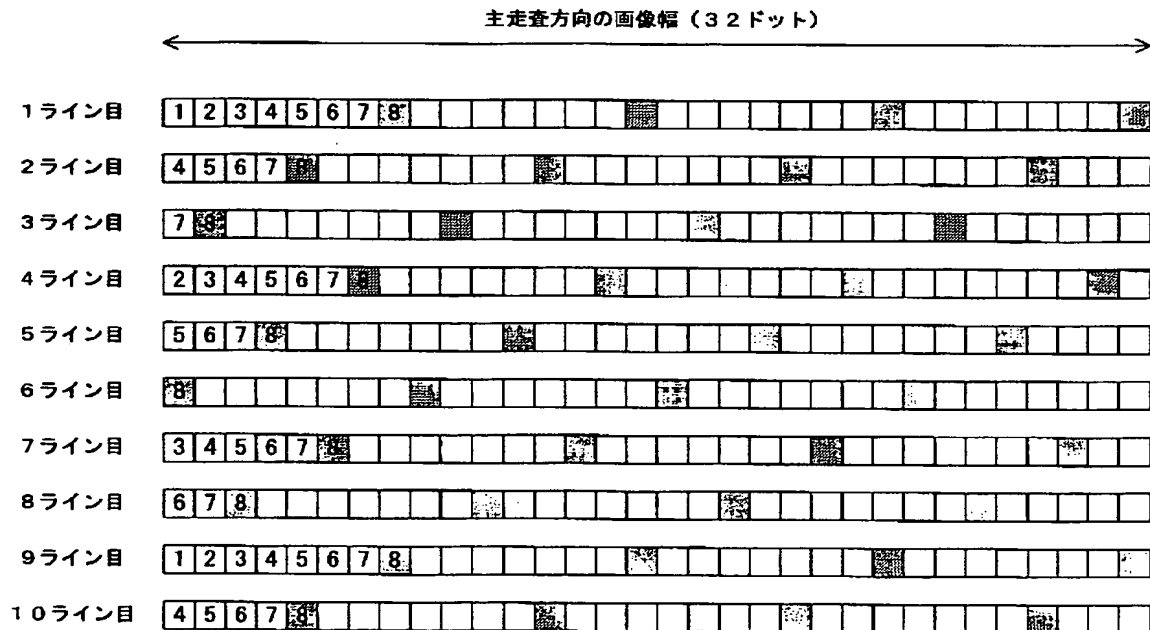 主走査方向の画像幅(32ドット)
1ライン目 1 2 3 4 5 6 7 8
2ライン目 4 5 6 7 8
3ライン目 7 8
4ライン目 2 3 4 5 6 7 8
5ライン目 5 6 7 8
6ライン目 8
7ライン目 3 4 5 6 7 8
8ライン目 6 7 8
9ライン目 1 2 3 4 5 6 7 8
10ライン目 4 5 6 7 8